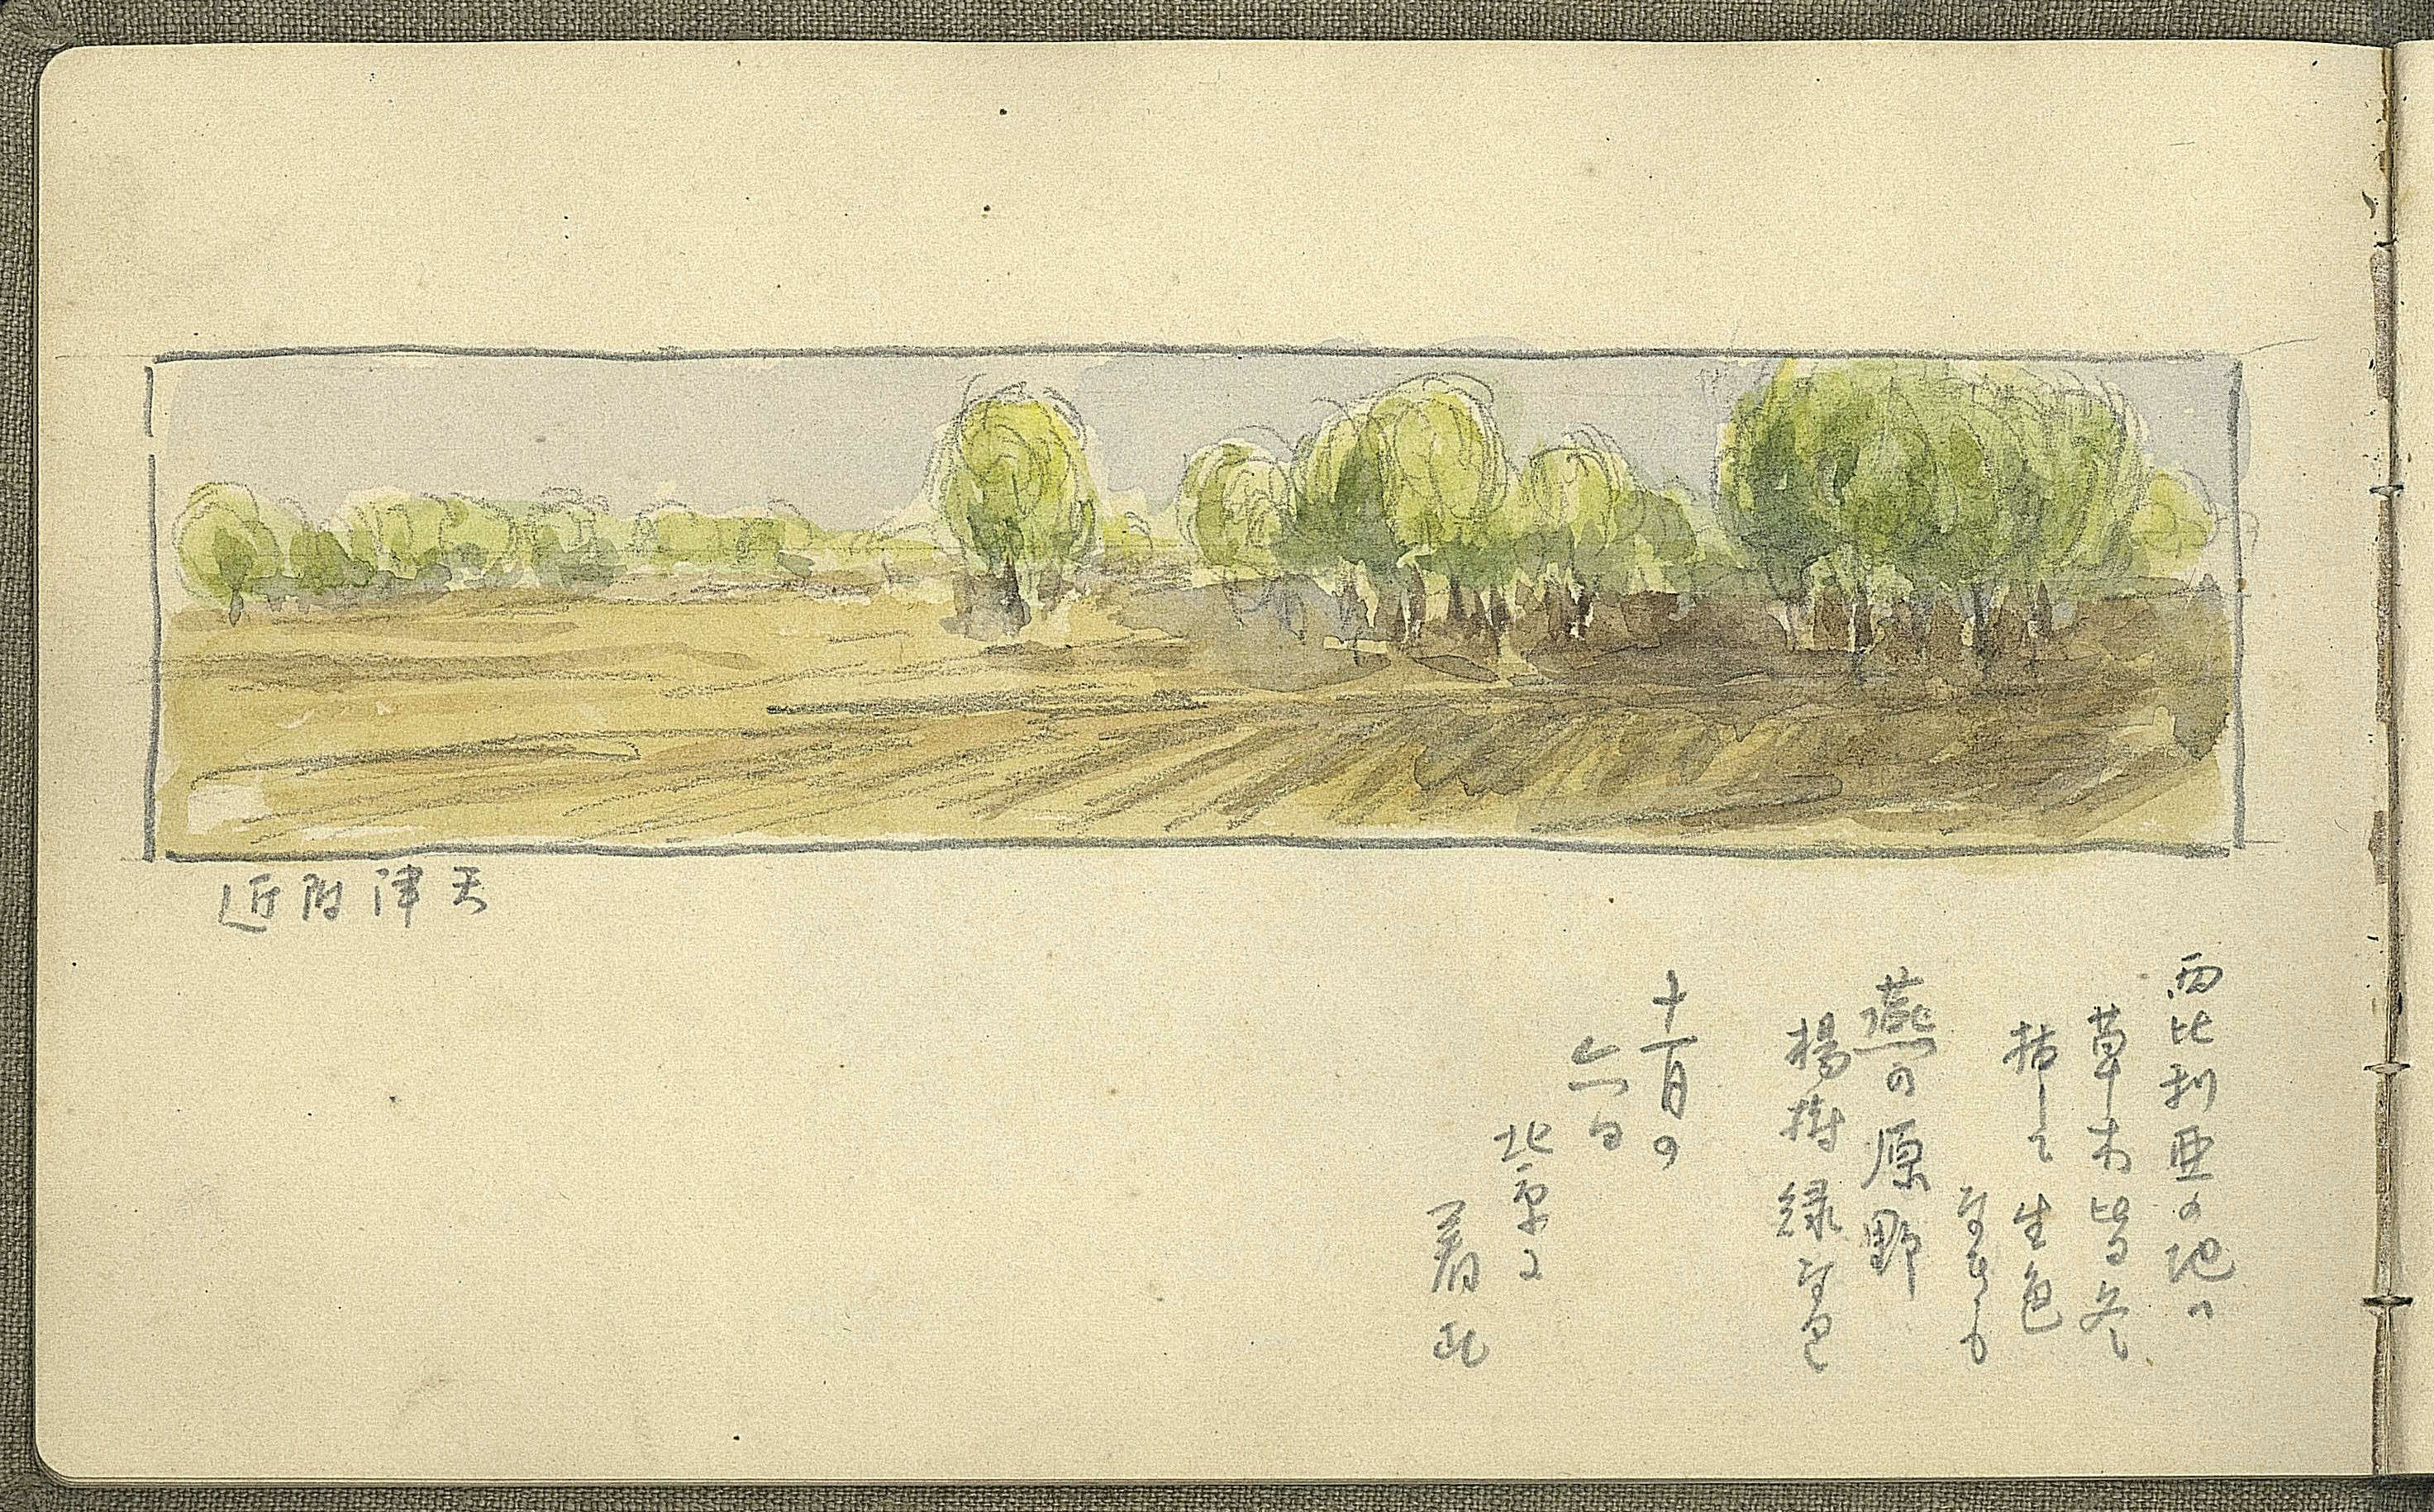 天津附近
西比利亜の地ハ
草木皆冬
枯して生色
なきも
燕の原野
楊樹緑な
十一月の
六日
北京に
着